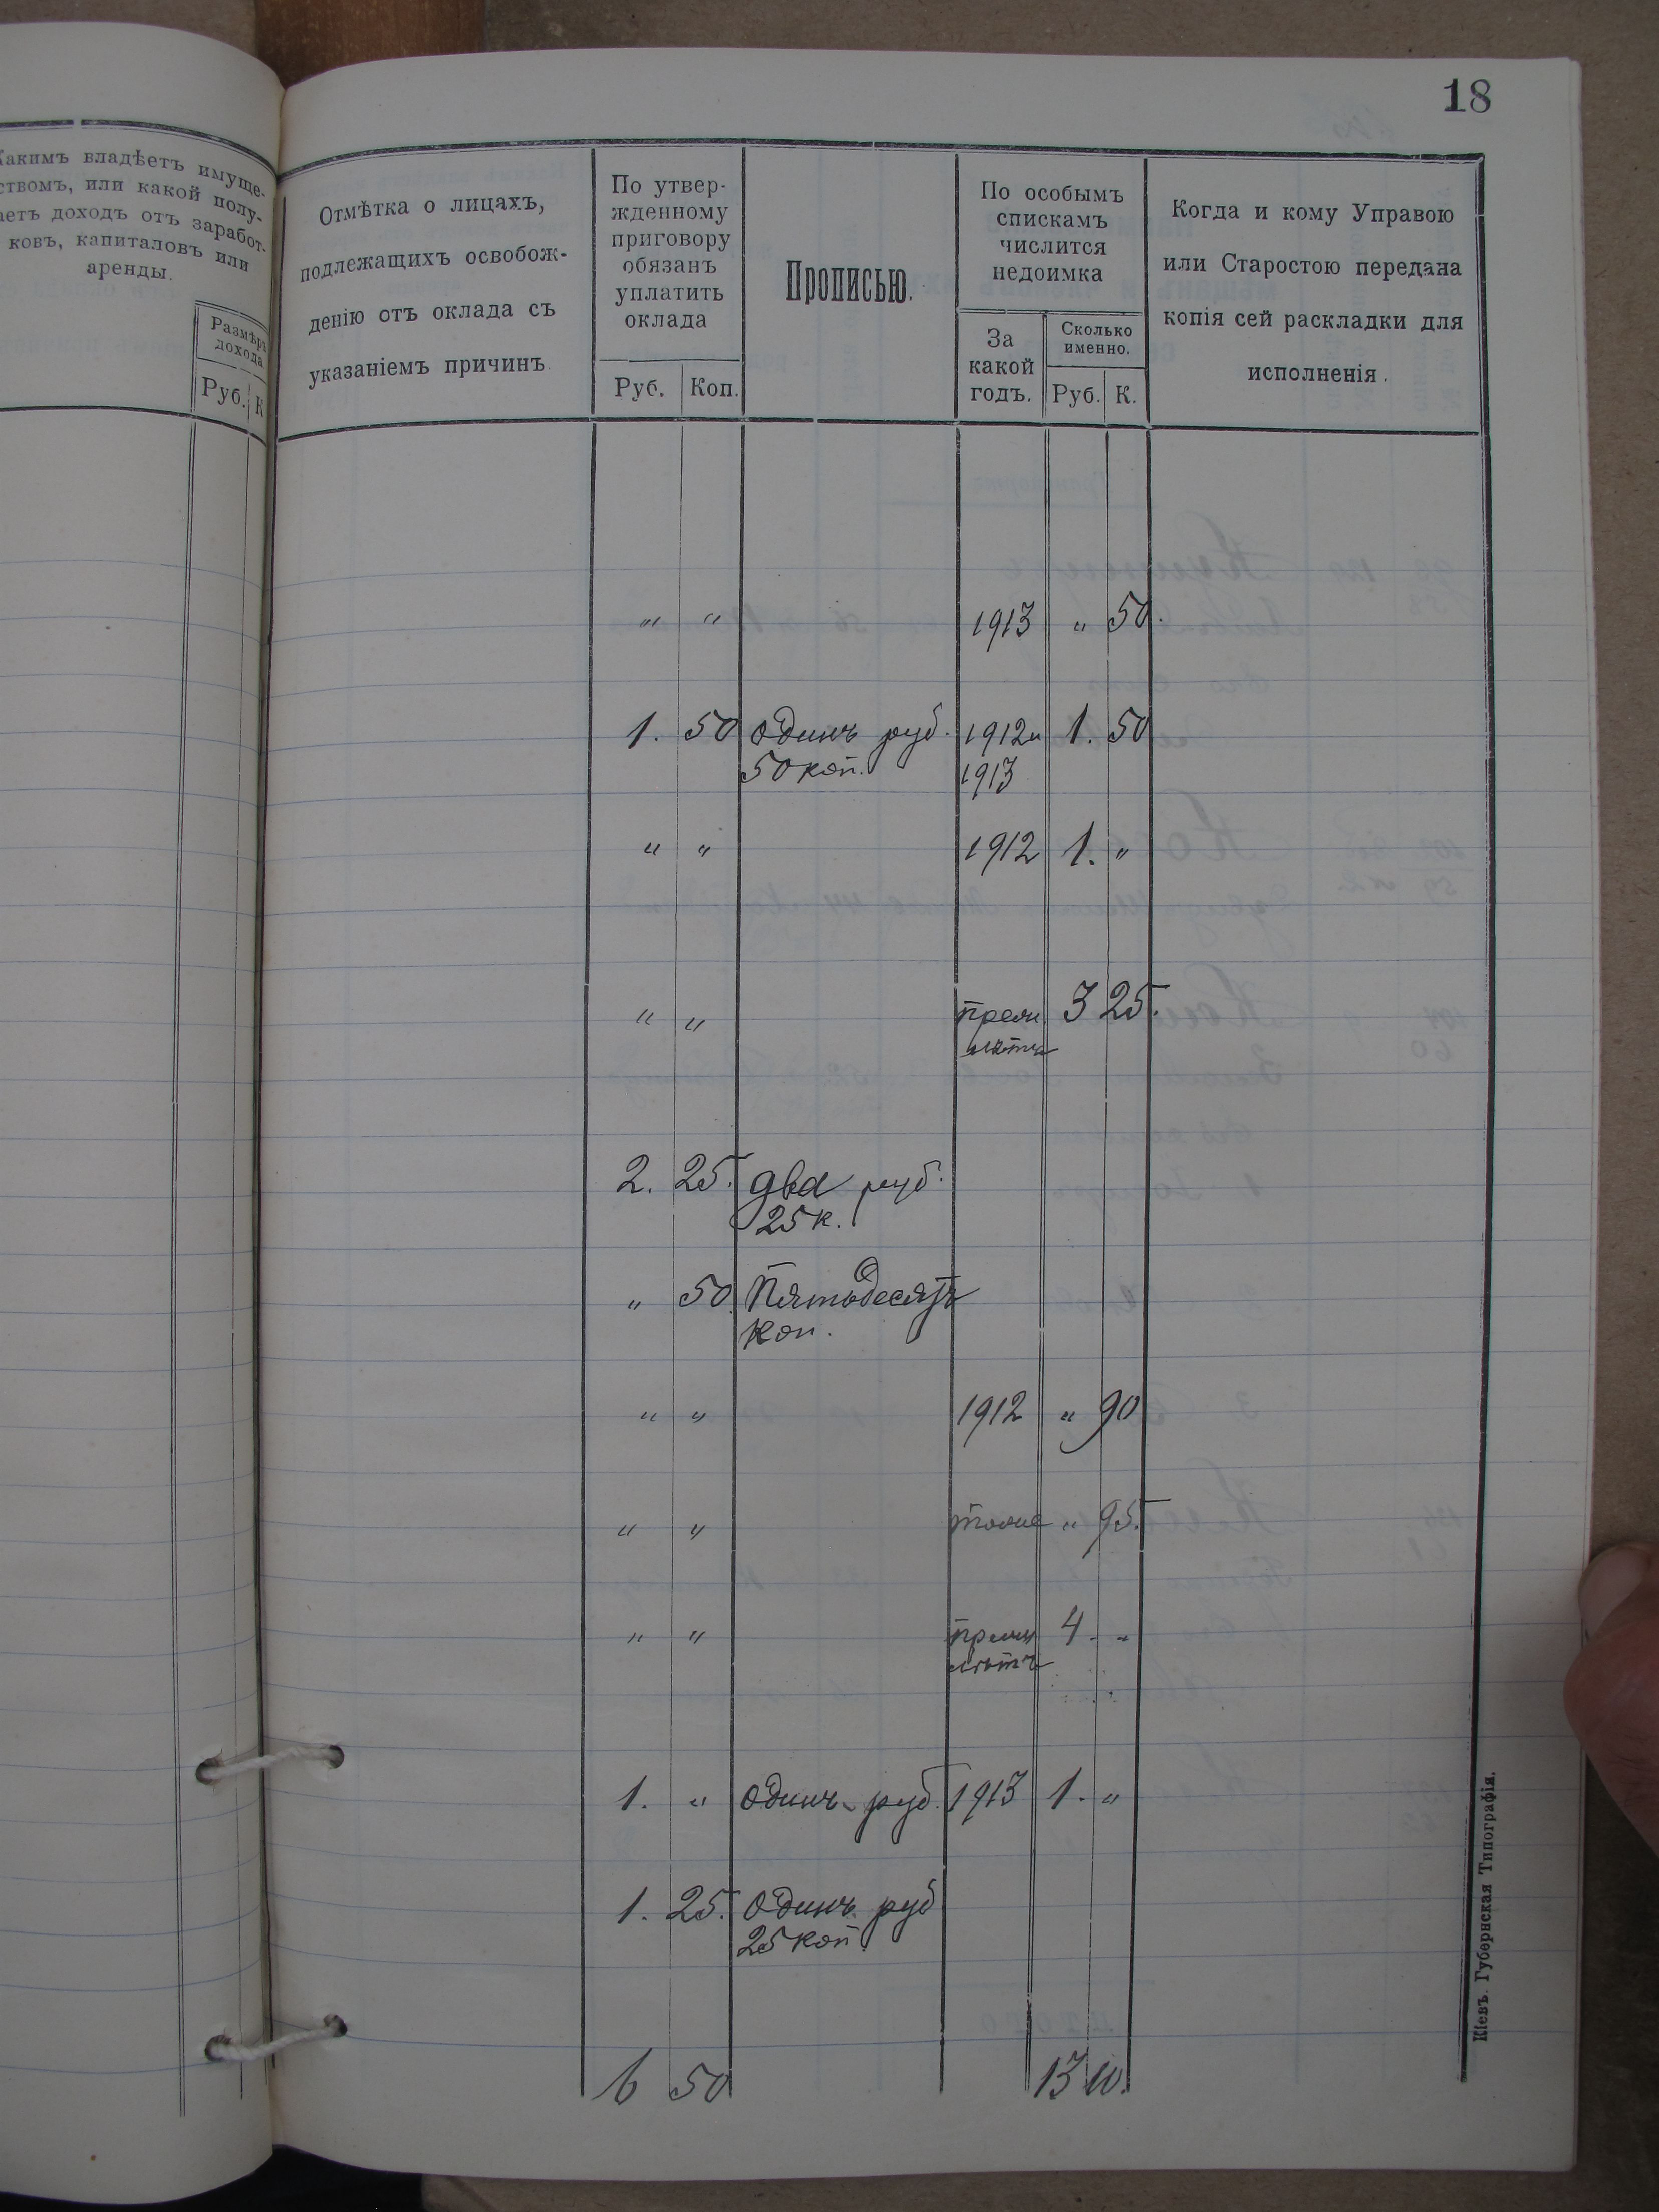 18
Какимъ владѣетъ имуще-
ствомъ, или какой полу-
аетъ доходъ отъ заработ-
ковъ, капиталовъ или
аренды.
Размѣръ
дохода
Руб. К
Отмѣтка о лицахъ,
подлежащихъ освобож-
денію отъ оклада съ
указаніемъ причинъ.
По утвер-
жденному
приговору
обязанъ
уплатить
оклада
Руб. Коп.
Прописью.
По особымъ
спискамъ
числится
недоимка
За
какой
годъ.
Сколько
именно.
Руб. К.
Когда и кому Управою
или Старостою передана
копія сей раскладки для
исполненія.
" " 1913 " 50.
1. 50 одинъ руб. 1912 и 1. 50
50 коп. 1913
" " 1912 1. "
" " 3 25.
лѣтъ
2. 25. два руб.
25 к.
" 50. Пятьдесятъ
коп.
" " 1912 " 90
" " тоже " 95.
" " 4. "
лѣтъ
1. " Одинъ руб. 1913 1. "
1. 25. Одинъ руб
25 коп.
6 50 13 10.
Кіевъ. Губернская Типографія.